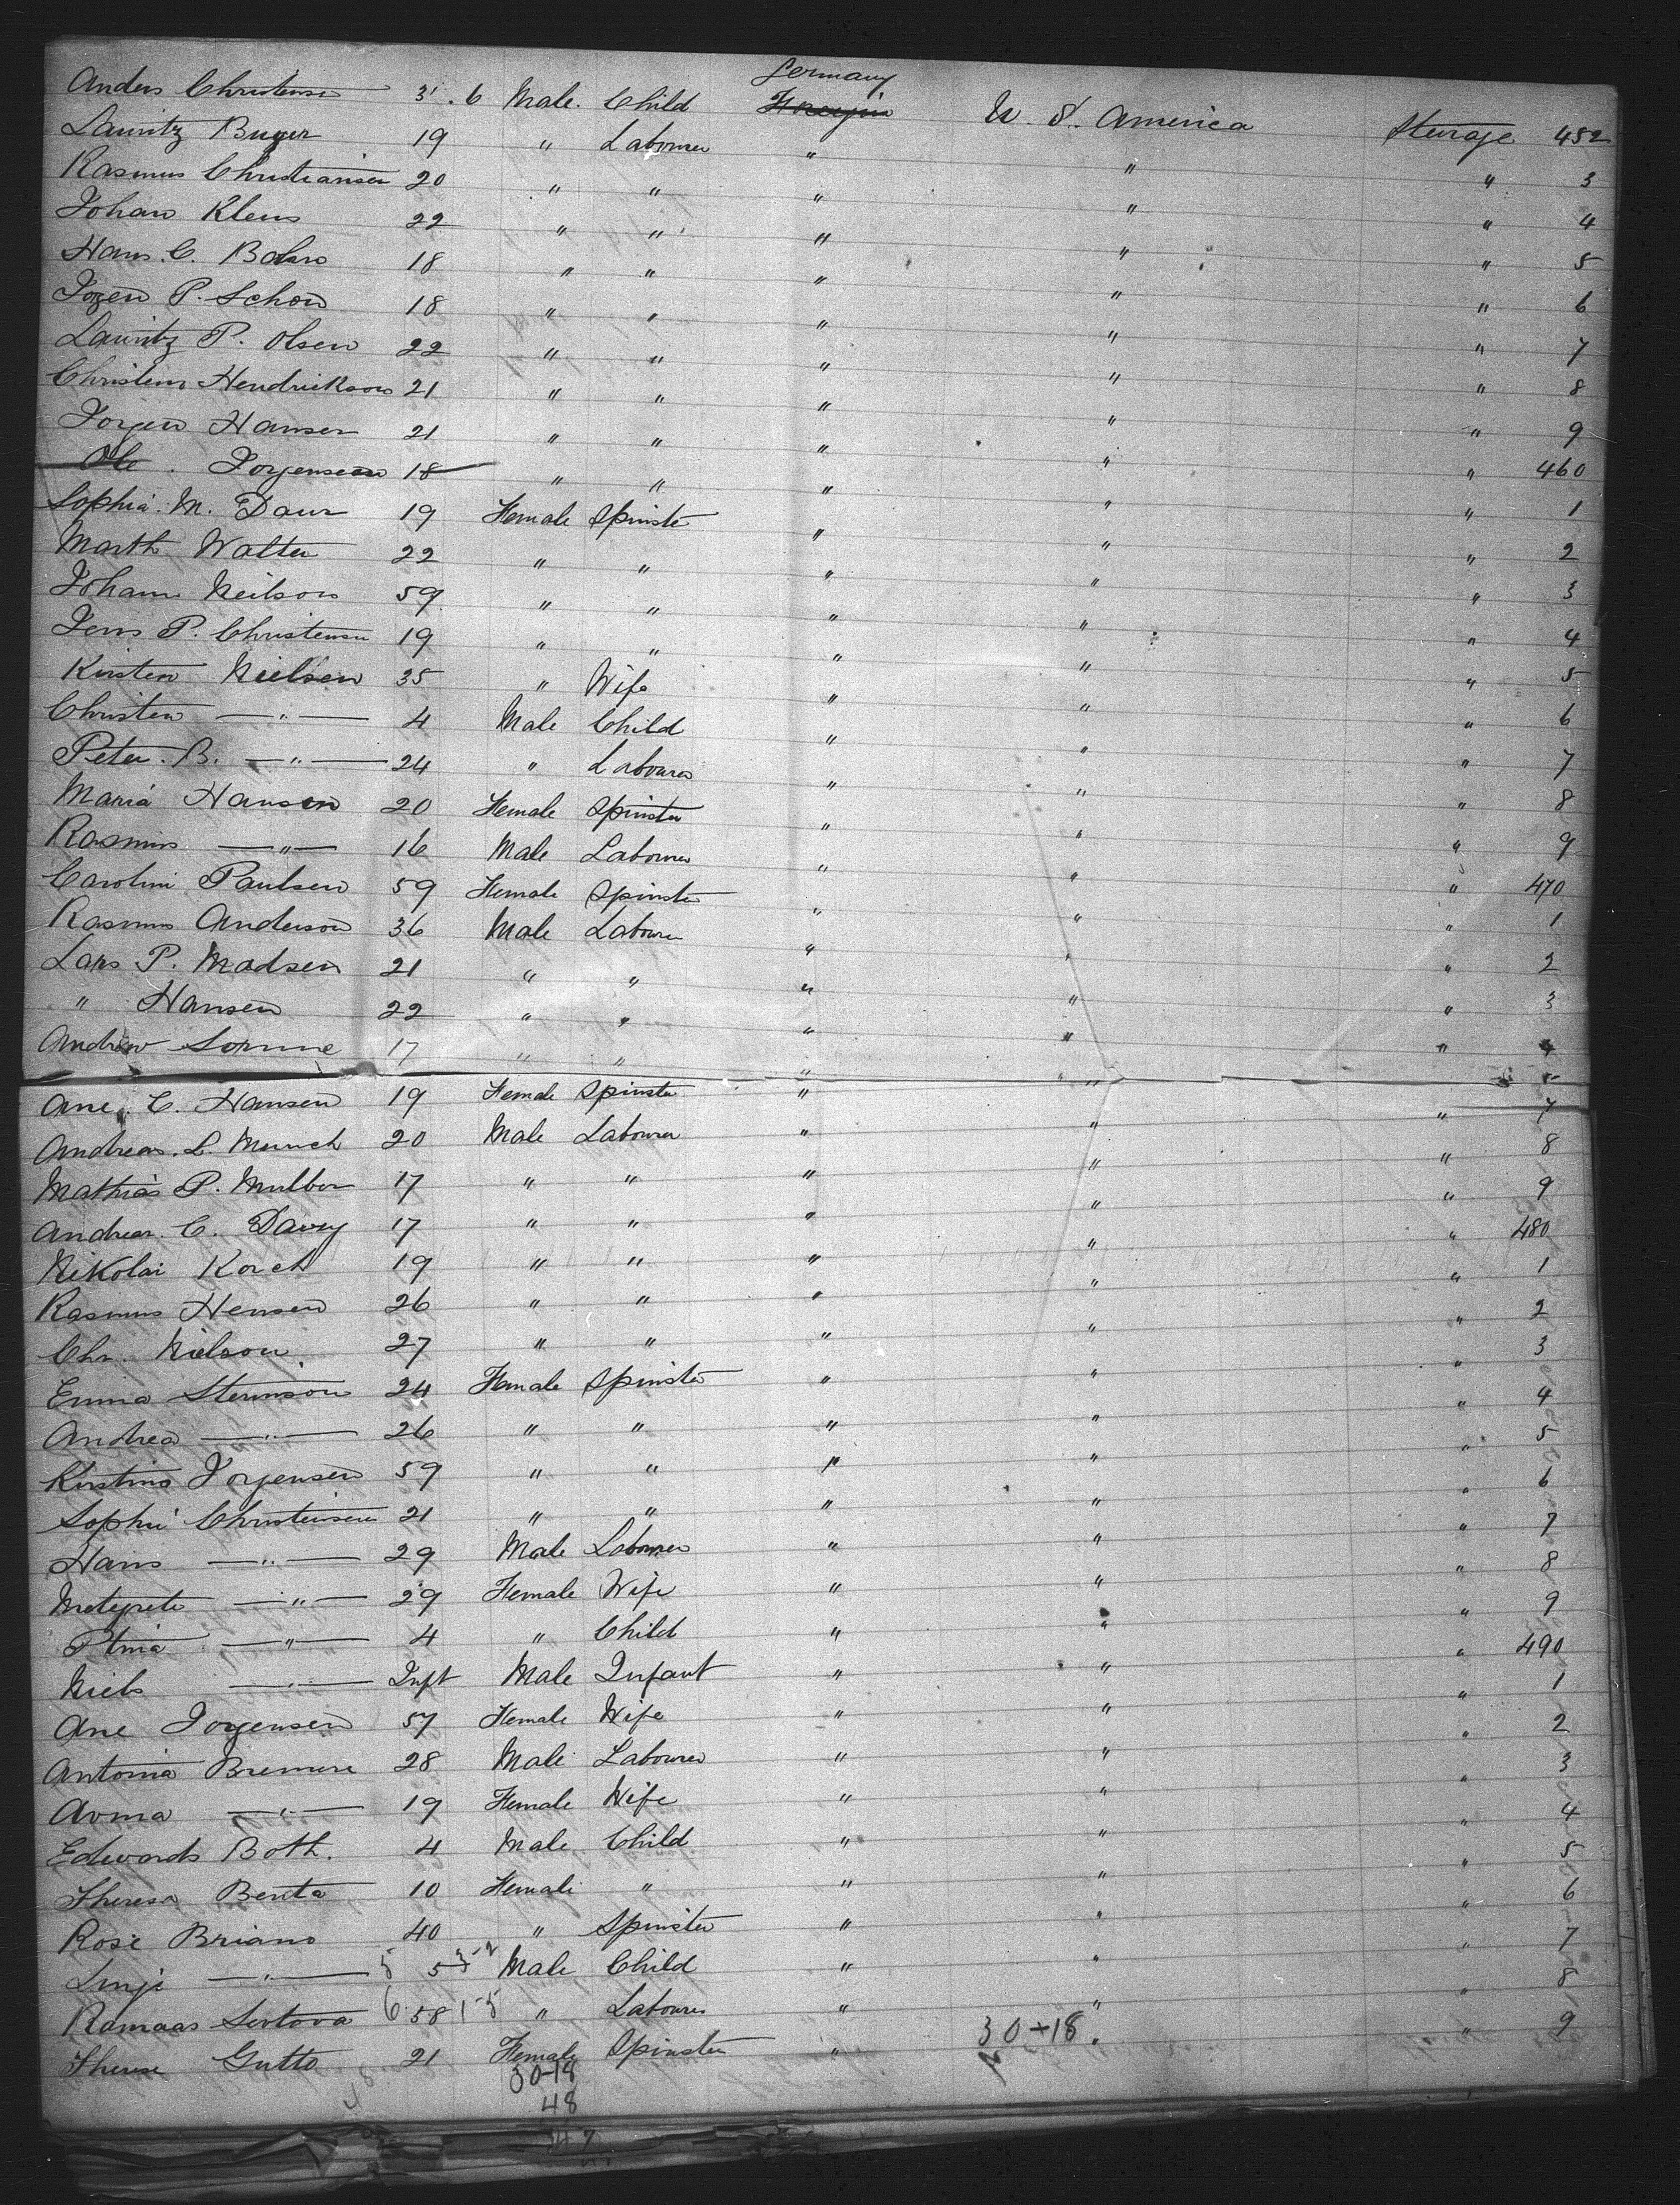 Anders Christensen 3 . 6 Male. Child Germany Foreign U. S. America Steerage 452
Lauritz Buger 19 " Labourer " " " 3
Rasmus Christiansen 20 " " " " " 4
Johan Klens 22 " " " " " 5
Hans. C. Bohn 18 " " " " " 6
P. Schon 18 " " " " " 7
Lauritz P. Olsen 22 " " " " " 8
Christen Hendrikson 21 " " " " " 9
Jorgen Hansen 21 " " " " " 460
Ole . Jorgensen 18 " " " " " 1
Sophia. M. Daur 19 Female Spinster " " " 2
Marth Walter 22 " " " " " 3
Johann Neilson 59 " " " " " 4
Jens P. Christensen 19 " " " " " 5
Kirsten Nielsen 35 " Wife " " " 6
Christen — " — 4 Male Child " " " 7
Peter. B. — " — 24 " Labourer " " " 8
Maria Hansen 20 Female Spinster " " " 9
Rasmus — " — 16 Male Labourer " " " 470
Carolini Paulsen 59 Female Spinster " " " 1
Rasmus Anderson 36 Male Labourer " " " 2
Lars P. Madsen 21 " " " " " 3
" Hansen 22 " " " " " 4
Andrew Somme 17 " " " " 5
Ane. C. Hansen 19 Female Spinster " " " 7
Andreas. L. Munch 20 Male Labourer " " " 8
Mathias P. Mulber 17 " " " " " 9
Andreas. C. Davy 17 " " " " " 480
Nikolai Korch 19 " " " " " 1
Rasmus Hensen 26 " " " " " 2
Chr. Nielson 27 " " " " " 3
Emma Stermson 24 Female Spinster " " " 4
Andrea — " — 26 " " " " " 5
Kirstina Jorgensen 59 " " " " " 6
Sophie Christensen 21 " " " " " 7
Hans — " — 29 Male Labourer " " " 8
Metegrete — " — 29 Female Wife " " " 9
— " — 4 " Child " " " 490
Niels — " — Inft Male Infant " " " 1
Ane Jorgensen 57 Female Wife " " " 2
Antonia Bremere 28 Male Labourer " " " 3
Anna — " — 19 Female Wife " " " 4
Edwards Both. 4 Male Child " " " 5
Theresa Benta 10 Female " " " " 6
Rose Briano 40 " Spinster " " " 7
— " — 5 Male Child " " " 8
Ramaas Sertova 58 " Labourer " " " 9
Therese Gutto 21 Female Spinster " 30+18 "
30-18
48
47